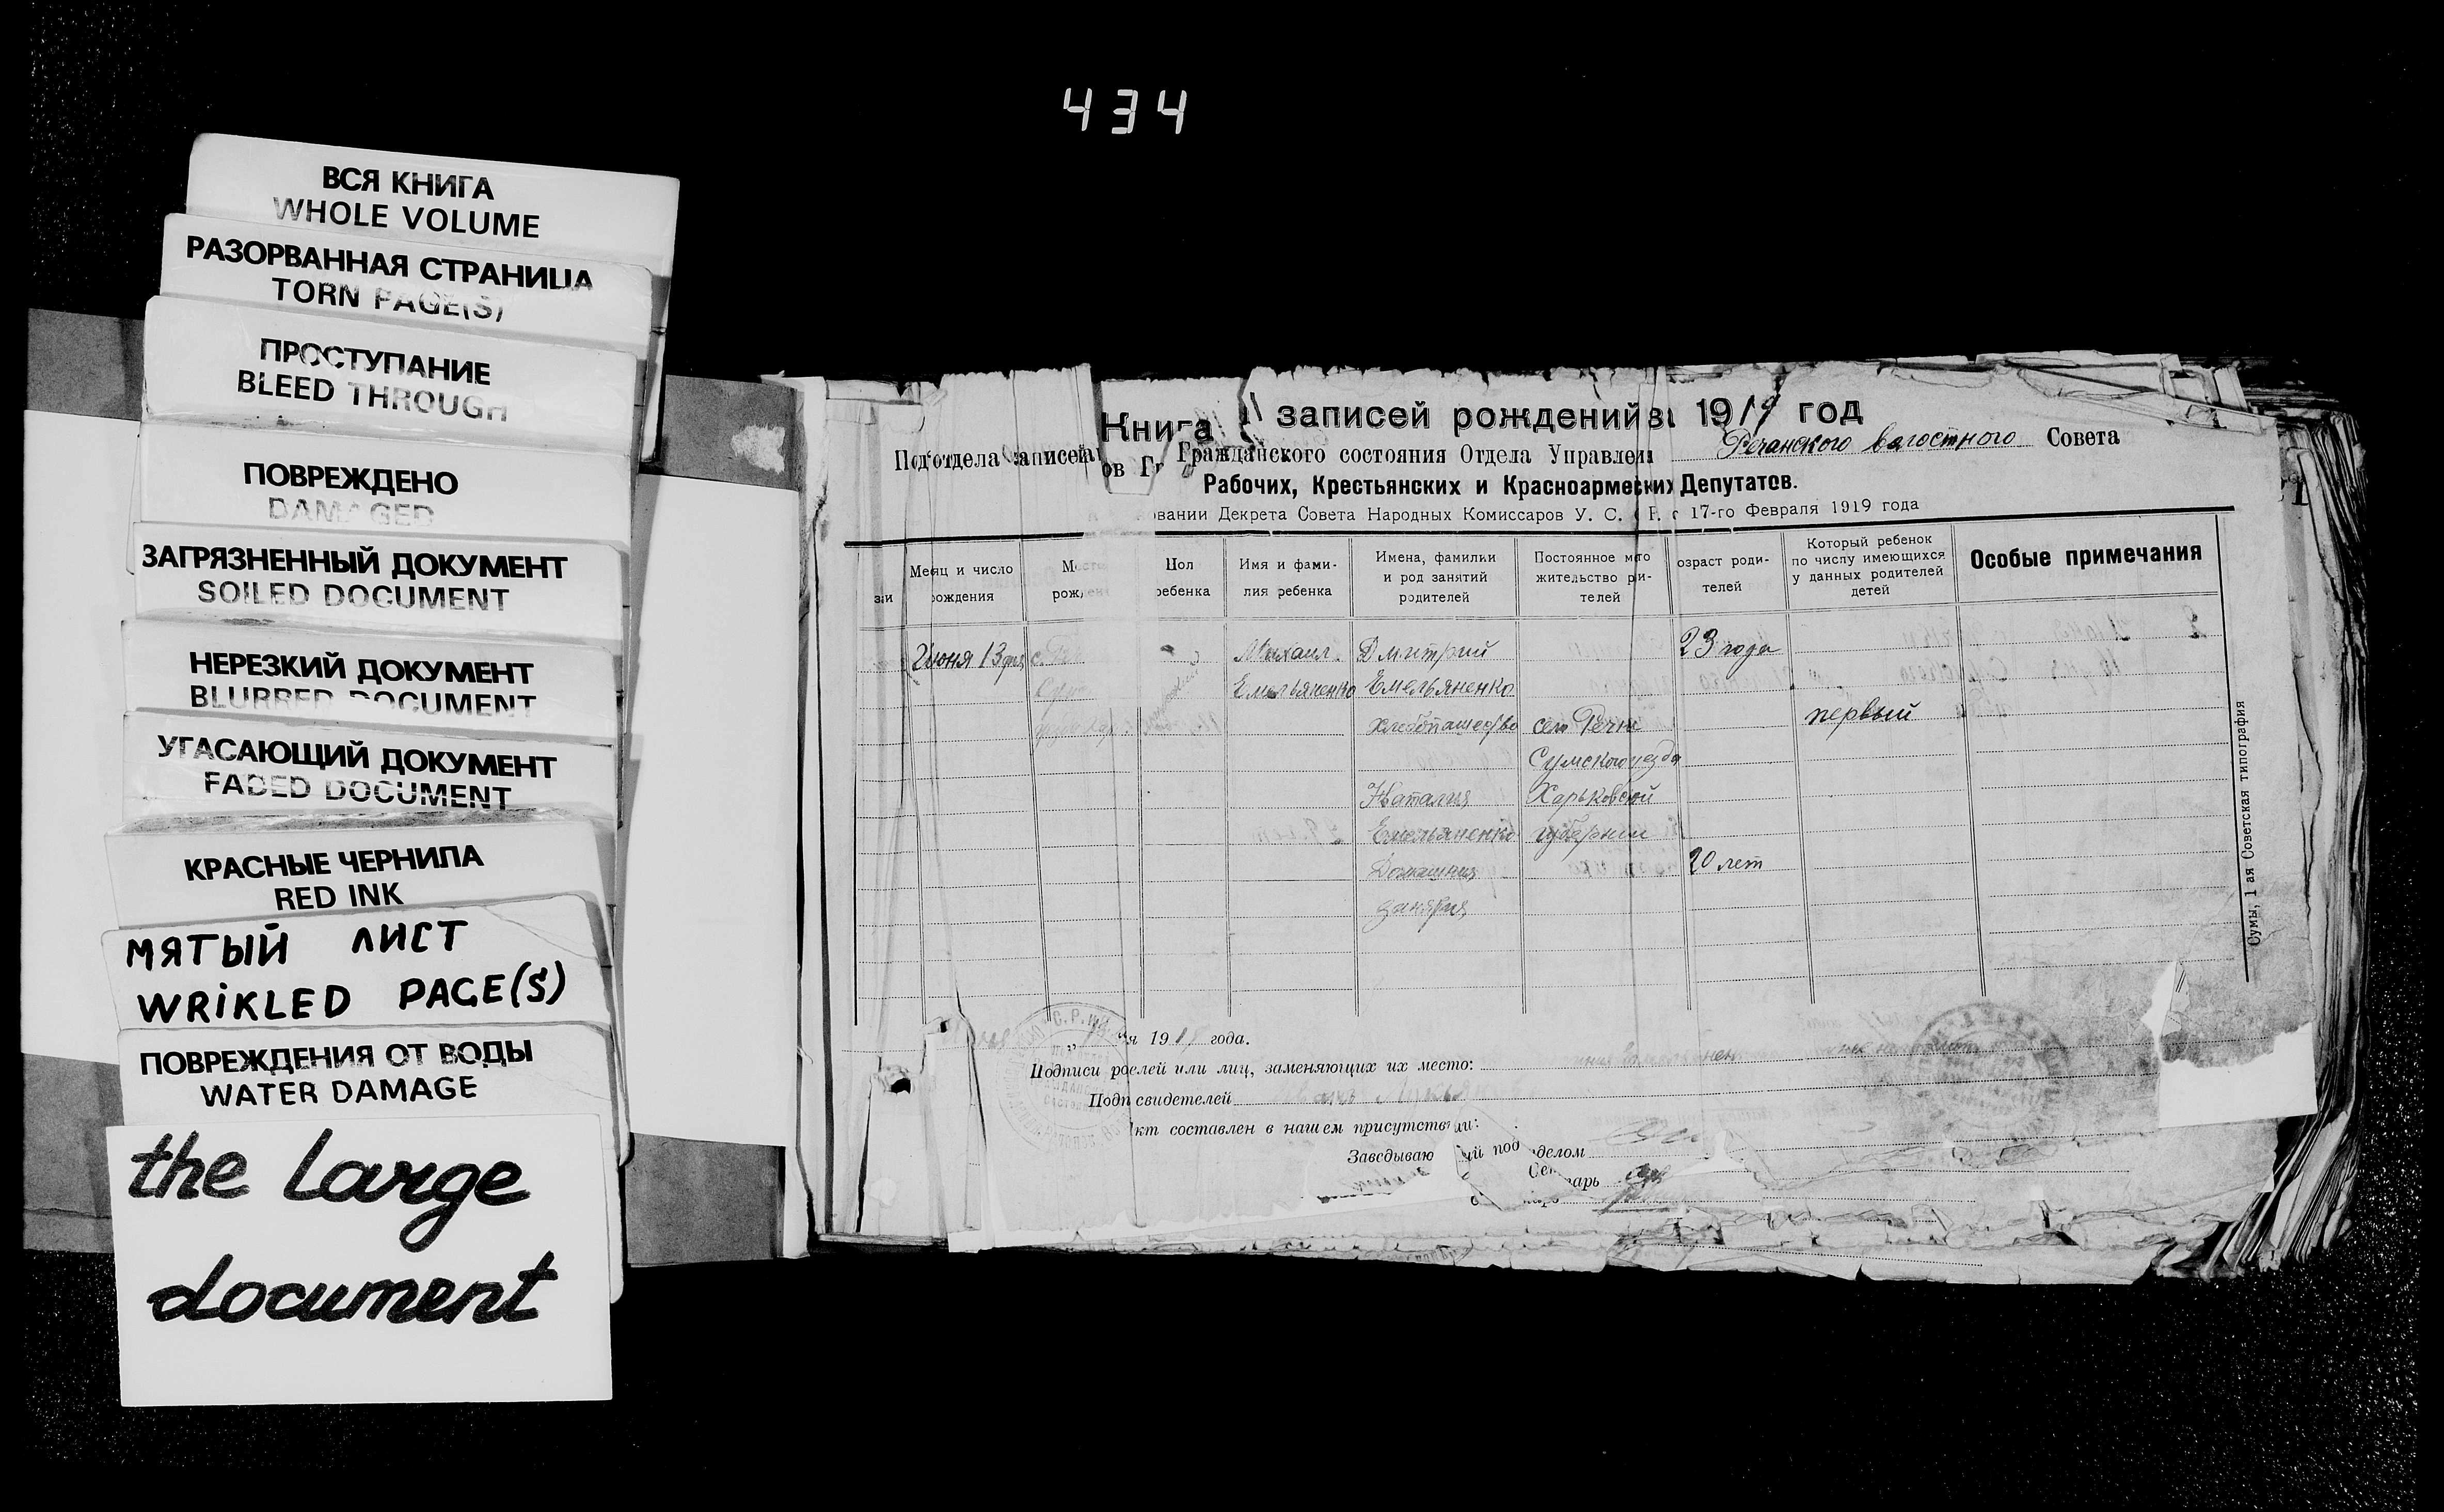 434
ВСЯ КНИГА
WHOLE VOLUME
РАЗОРВАННАЯ СТРАНИЦА
TORN PAGE(S)
ПРОСТУПАНИЕ
BLEED THROUGH
ПОВРЕЖДЕНО
DAMAGED
ЗАГРЯЗНЕННЫЙ ДОКУМЕНТ
SOILED DOCUMENT
НЕРЕЗКИЙ ДОКУМЕНТ
BLURRED DOCUMENT
УГАСАЮЩИЙ ДОКУМЕНТ
FADED DOCUMENT
КРАСНЫЕ ЧЕРНИЛА
RED INK
МЯТЫЙ ЛИСТ
WRIKLED PAGE(S)
ПОВРЕЖДЕНИЯ ОТ ВОДЫ
WATER DAMAGE
the large
document
Книга записей рождений за 1919 год
Подотдела записей Гражданского состояния Отдела Управлени Речанского волостного Совета
Рабочих, Крестьянских и Красноармейских Депутатов.
Декрета Совета Народных Комиссаров У. С. Р. 17-го Февраля 1919 года
Месяц и число
рождения
Пол
ребенка
Имя и фами-
лия ребенка
Имена, фамилии
и род занятий
родителей
Постоянное место
жительство ри-
телей
озраст роди-
телей
Который ребенок
по числу имеющихся
у данных родителей
детей
Особые примечания
Июня 13 дня
Михаил
Дмитрий
23 года
Емельяненко
Емельяненко
хлебопашество
село Речки
первый
Сумского уезда
Наталия
Харьковской
Емельяненко
губернии
Домашния
20 лет
занятия
Сумы, 1 ая Советская типография
191 года.
Подписи рителей или лиц, заменяющих их место:
Подп свидетелей
кт составлен в нашем присутствии:
Заведываю под делом